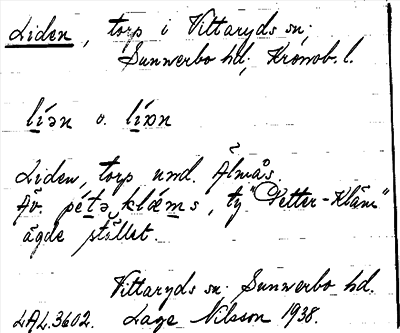 Liden, torp i Vittaryds sn;
Sunnerbo hd; Kronob. l.
líən o. líɒn
Liden, torp und. Älmås.
Äv. pétə klǽms, ty "Petter-Kläm"
ägde stället.
Vittaryds sn. Sunnerbo hd.
LAL.3602. Lage Nilsson 1938.